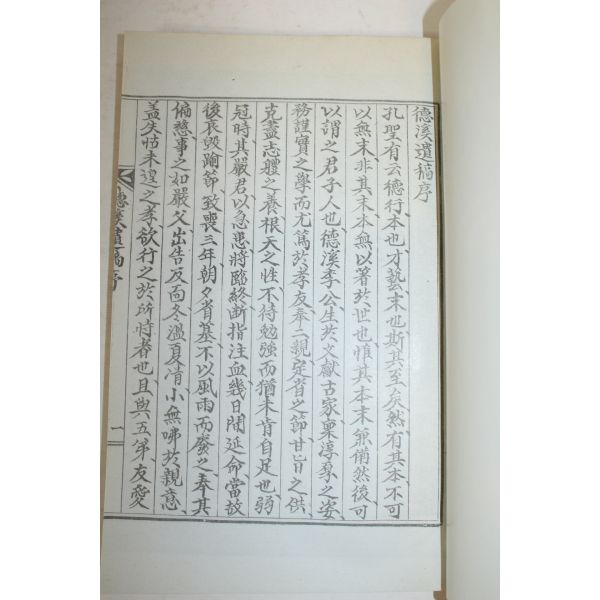 德溪遺稿序
孔聖有云德行本也才藝末也斯其至矣然有其本不可
以無末非其末本無以著於世也惟其本末兼備然後可
以謂之君子人也德溪李公生於文獻古家稟淳厚之姿
務謹實之學而尤篤於孝友奉二親定省之節甘旨之供
克盡志軆之養根天之性不待勉強而猶未肯自足也弱
冠時其嚴君以急患將臨終斷指注血幾日間延命當故
後哀毁踰節致喪三年朝夕省墓不以風雨而廢之奉其
偏慈事之如嚴父出告反面冬溫夏凊小無咈於親意
盖失怙未逮之孝欲行之於所恃者也且與五弟友愛
德溪遺稿序
一